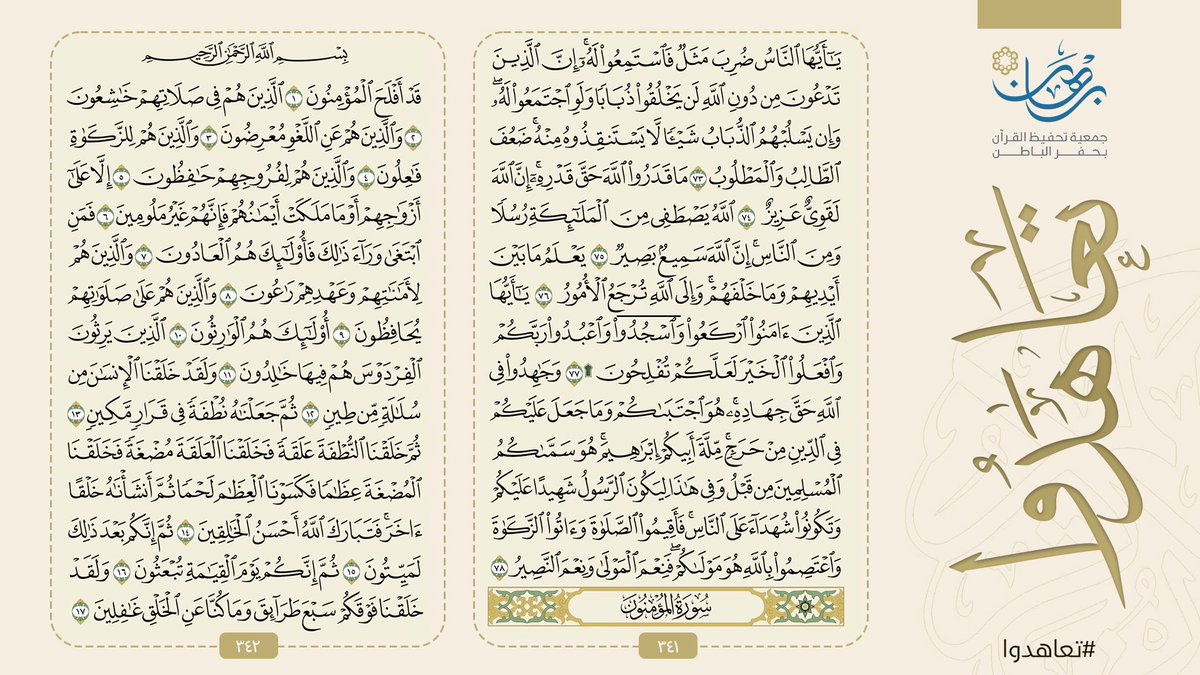 برهان
جمعية تحفيظ القرآن
بحفر الباطن
تعاهدوا
#تعاهدوا
يَٰٓأَيُّهَا ٱلنَّاسُ ضُرِبَ مَثَلٞ فَٱسۡتَمِعُواْ لَهُۥٓۚ إِنَّ ٱلَّذِينَ
تَدۡعُونَ مِن دُونِ ٱللَّهِ لَن يَخۡلُقُواْ ذُبَابٗا وَلَوِ ٱجۡتَمَعُواْ لَهُۥۖ
وَإِن يَسۡلُبۡهُمُ ٱلذُّبَابُ شَيۡـٔٗا لَّا يَسۡتَنقِذُوهُ مِنۡهُۚ ضَعُفَ
ٱلطَّالِبُ وَٱلۡمَطۡلُوبُ ٧٣ مَا قَدَرُواْ ٱللَّهَ حَقَّ قَدۡرِهِۦٓۚ إِنَّ ٱللَّهَ
لَقَوِيٌّ عَزِيزٌ ٧٤ ٱللَّهُ يَصۡطَفِي مِنَ ٱلۡمَلَٰٓئِكَةِ رُسُلٗا
وَمِنَ ٱلنَّاسِۚ إِنَّ ٱللَّهَ سَمِيعُۢ بَصِيرٞ ٧٥ يَعۡلَمُ مَا بَيۡنَ
أَيۡدِيهِمۡ وَمَا خَلۡفَهُمۡۚ وَإِلَى ٱللَّهِ تُرۡجَعُ ٱلۡأُمُورُ ٧٦ يَٰٓأَيُّهَا
ٱلَّذِينَ ءَامَنُواْ ٱرۡكَعُواْ وَٱسۡجُدُواْ وَٱعۡبُدُواْ رَبَّكُمۡ
وَٱفۡعَلُواْ ٱلۡخَيۡرَ لَعَلَّكُمۡ تُفۡلِحُونَ۩ ٧٧ وَجَٰهِدُواْ فِي
ٱللَّهِ حَقَّ جِهَادِهِۦۚ هُوَ ٱجۡتَبَىٰكُمۡ وَمَا جَعَلَ عَلَيۡكُمۡ
فِي ٱلدِّينِ مِنۡ حَرَجٖۚ مِّلَّةَ أَبِيكُمۡ إِبۡرَٰهِيمَۚ هُوَ سَمَّىٰكُمُ
ٱلۡمُسۡلِمِينَ مِن قَبۡلُ وَفِي هَٰذَا لِيَكُونَ ٱلرَّسُولُ شَهِيدًا عَلَيۡكُمۡ
وَتَكُونُواْ شُهَدَآءَ عَلَى ٱلنَّاسِۚ فَأَقِيمُواْ ٱلصَّلَوٰةَ وَءَاتُواْ ٱلزَّكَوٰةَ
وَٱعۡتَصِمُواْ بِٱللَّهِ هُوَ مَوۡلَىٰكُمۡۖ فَنِعۡمَ ٱلۡمَوۡلَىٰ وَنِعۡمَ ٱلنَّصِيرُ ٧٨
سُورَةُ المُؤۡمِنُونَ
٣٤١
بِسۡمِ ٱللَّهِ ٱلرَّحۡمَٰنِ ٱلرَّحِيمِ
قَدۡ أَفۡلَحَ ٱلۡمُؤۡمِنُونَ ١ ٱلَّذِينَ هُمۡ فِي صَلَاتِهِمۡ خَٰشِعُونَ
٢ وَٱلَّذِينَ هُمۡ عَنِ ٱللَّغۡوِ مُعۡرِضُونَ ٣ وَٱلَّذِينَ هُمۡ لِلزَّكَوٰةِ
فَٰعِلُونَ ٤ وَٱلَّذِينَ هُمۡ لِفُرُوجِهِمۡ حَٰفِظُونَ ٥ إِلَّا عَلَىٰٓ
أَزۡوَٰجِهِمۡ أَوۡ مَا مَلَكَتۡ أَيۡمَٰنُهُمۡ فَإِنَّهُمۡ غَيۡرُ مَلُومِينَ ٦ فَمَنِ
ٱبۡتَغَىٰ وَرَآءَ ذَٰلِكَ فَأُوْلَٰٓئِكَ هُمُ ٱلۡعَادُونَ ٧ وَٱلَّذِينَ هُمۡ
لِأَمَٰنَٰتِهِمۡ وَعَهۡدِهِمۡ رَٰعُونَ ٨ وَٱلَّذِينَ هُمۡ عَلَىٰ صَلَوَٰتِهِمۡ
يُحَافِظُونَ ٩ أُوْلَٰٓئِكَ هُمُ ٱلۡوَٰرِثُونَ ١٠ ٱلَّذِينَ يَرِثُونَ
ٱلۡفِرۡدَوۡسَ هُمۡ فِيهَا خَٰلِدُونَ ١١ وَلَقَدۡ خَلَقۡنَا ٱلۡإِنسَٰنَ مِن
سُلَٰلَةٖ مِّن طِينٖ ١٢ ثُمَّ جَعَلۡنَٰهُ نُطۡفَةٗ فِي قَرَارٖ مَّكِينٖ ١٣
ثُمَّ خَلَقۡنَا ٱلنُّطۡفَةَ عَلَقَةٗ فَخَلَقۡنَا ٱلۡعَلَقَةَ مُضۡغَةٗ فَخَلَقۡنَا
ٱلۡمُضۡغَةَ عِظَٰمٗا فَكَسَوۡنَا ٱلۡعِظَٰمَ لَحۡمٗا ثُمَّ أَنشَأۡنَٰهُ خَلۡقًا
ءَاخَرَۚ فَتَبَارَكَ ٱللَّهُ أَحۡسَنُ ٱلۡخَٰلِقِينَ ١٤ ثُمَّ إِنَّكُم بَعۡدَ ذَٰلِكَ
لَمَيِّتُونَ ١٥ ثُمَّ إِنَّكُمۡ يَوۡمَ ٱلۡقِيَٰمَةِ تُبۡعَثُونَ ١٦ وَلَقَدۡ
خَلَقۡنَا فَوۡقَكُمۡ سَبۡعَ طَرَآئِقَ وَمَا كُنَّا عَنِ ٱلۡخَلۡقِ غَٰفِلِينَ ١٧
٣٤٢